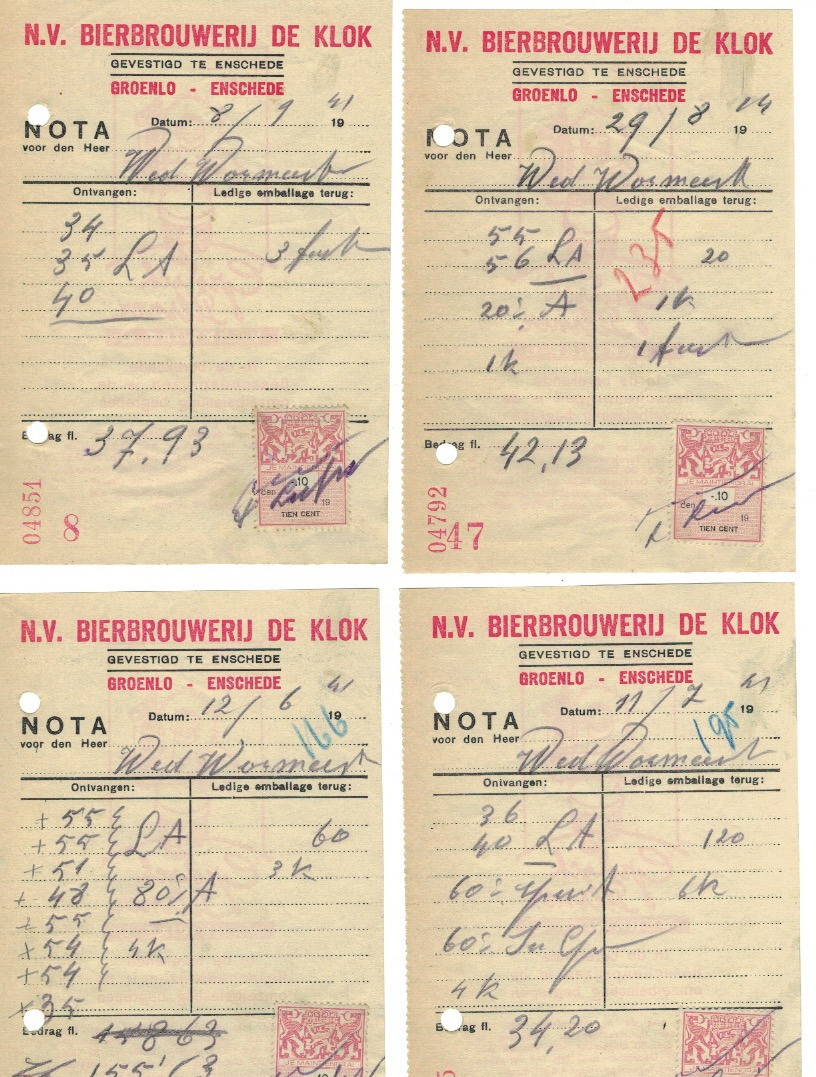 N.V. BIERBROUWERIJ DE KLOK
GEVESTIGD TE ENSCHEDE
GROENLO - ENSCHEDE
Datum: 8/9 1941
NOTA
voor den Heer
Wed Wormeest
Ontvangen: Ledige emballage terug:
34
35 LA 3 fust
40
Bedrag fl. 37,93
JE MAINTIENDRAI
.10
den 19
TIEN CENT
04851
8
N.V. BIERBROUWERIJ DE KLOK
GEVESTIGD TE ENSCHEDE
GROENLO - ENSCHEDE
Datum: 29/8 19
NOTA
voor den Heer
Wed Wormeest
Ontvangen: Ledige emballage terug:
55
56 LA 20
235
20 A 1k
1 fust
1k
Bedrag fl. 42,13
JE MAINTIENDRAI
-.10
den 19
TIEN CENT
04792
47
N.V. BIERBROUWERIJ DE KLOK
GEVESTIGD TE ENSCHEDE
GROENLO - ENSCHEDE
Datum: 12/6 1941
166
NOTA
voor den Heer
Wed Wormeest
Ontvangen: Ledige emballage terug:
+ 55
+ 55 LA 60
+ 51 3k
+ 48 80 A
+ 55
+ 54 4k
+ 54
+ 35
Bedrag fl.
JE MAINTIENDRAI
.10
N.V. BIERBROUWERIJ DE KLOK
GEVESTIGD TE ENSCHEDE
GROENLO - ENSCHEDE
Datum: 11/7 1941
195
NOTA
voor den Heer
Wed Wormeest
Ontvangen: Ledige emballage terug:
36
40 LA 120
60 A 6k
60
4k
Bedrag fl. 34,20
JE MAINTIENDRAI